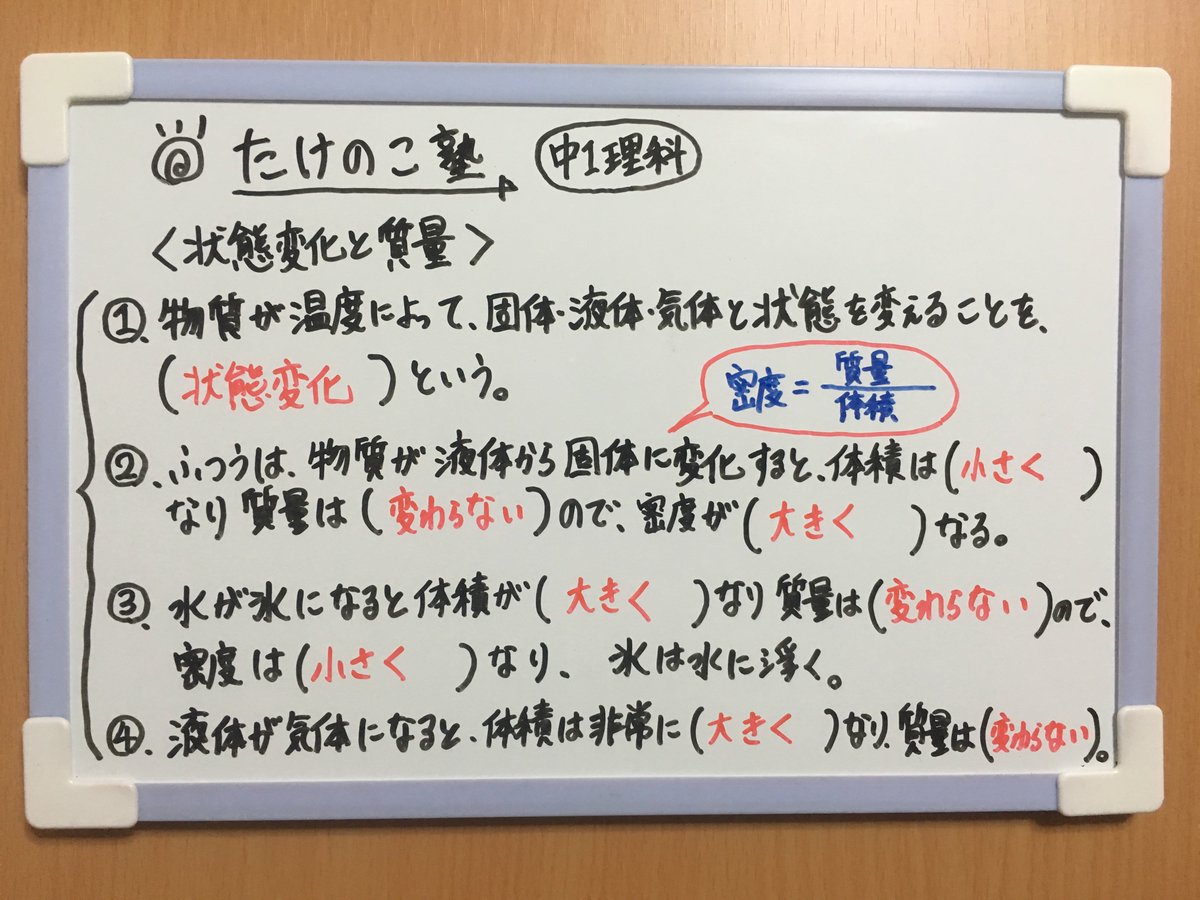 @ たけのこ塾 中1理科
<状態変化と質量>
①、物質が温度によって、固体・液体・気体と状態を変えることを、
(状態変化)という。
密度=質量/体積
②、ふつうは、物質が液体から固体に変化すると、体積は(小さく)
なり質量は(変わらない)ので、密度が(大きく)なる。
③、水が氷になると体積が(大きく)なり質量は(変わらない)ので、
密度は(小さく)なり、氷は水に浮く。
④、液体が気体になると、体積は非常に(大きく)なり、質量は(変わらない)。